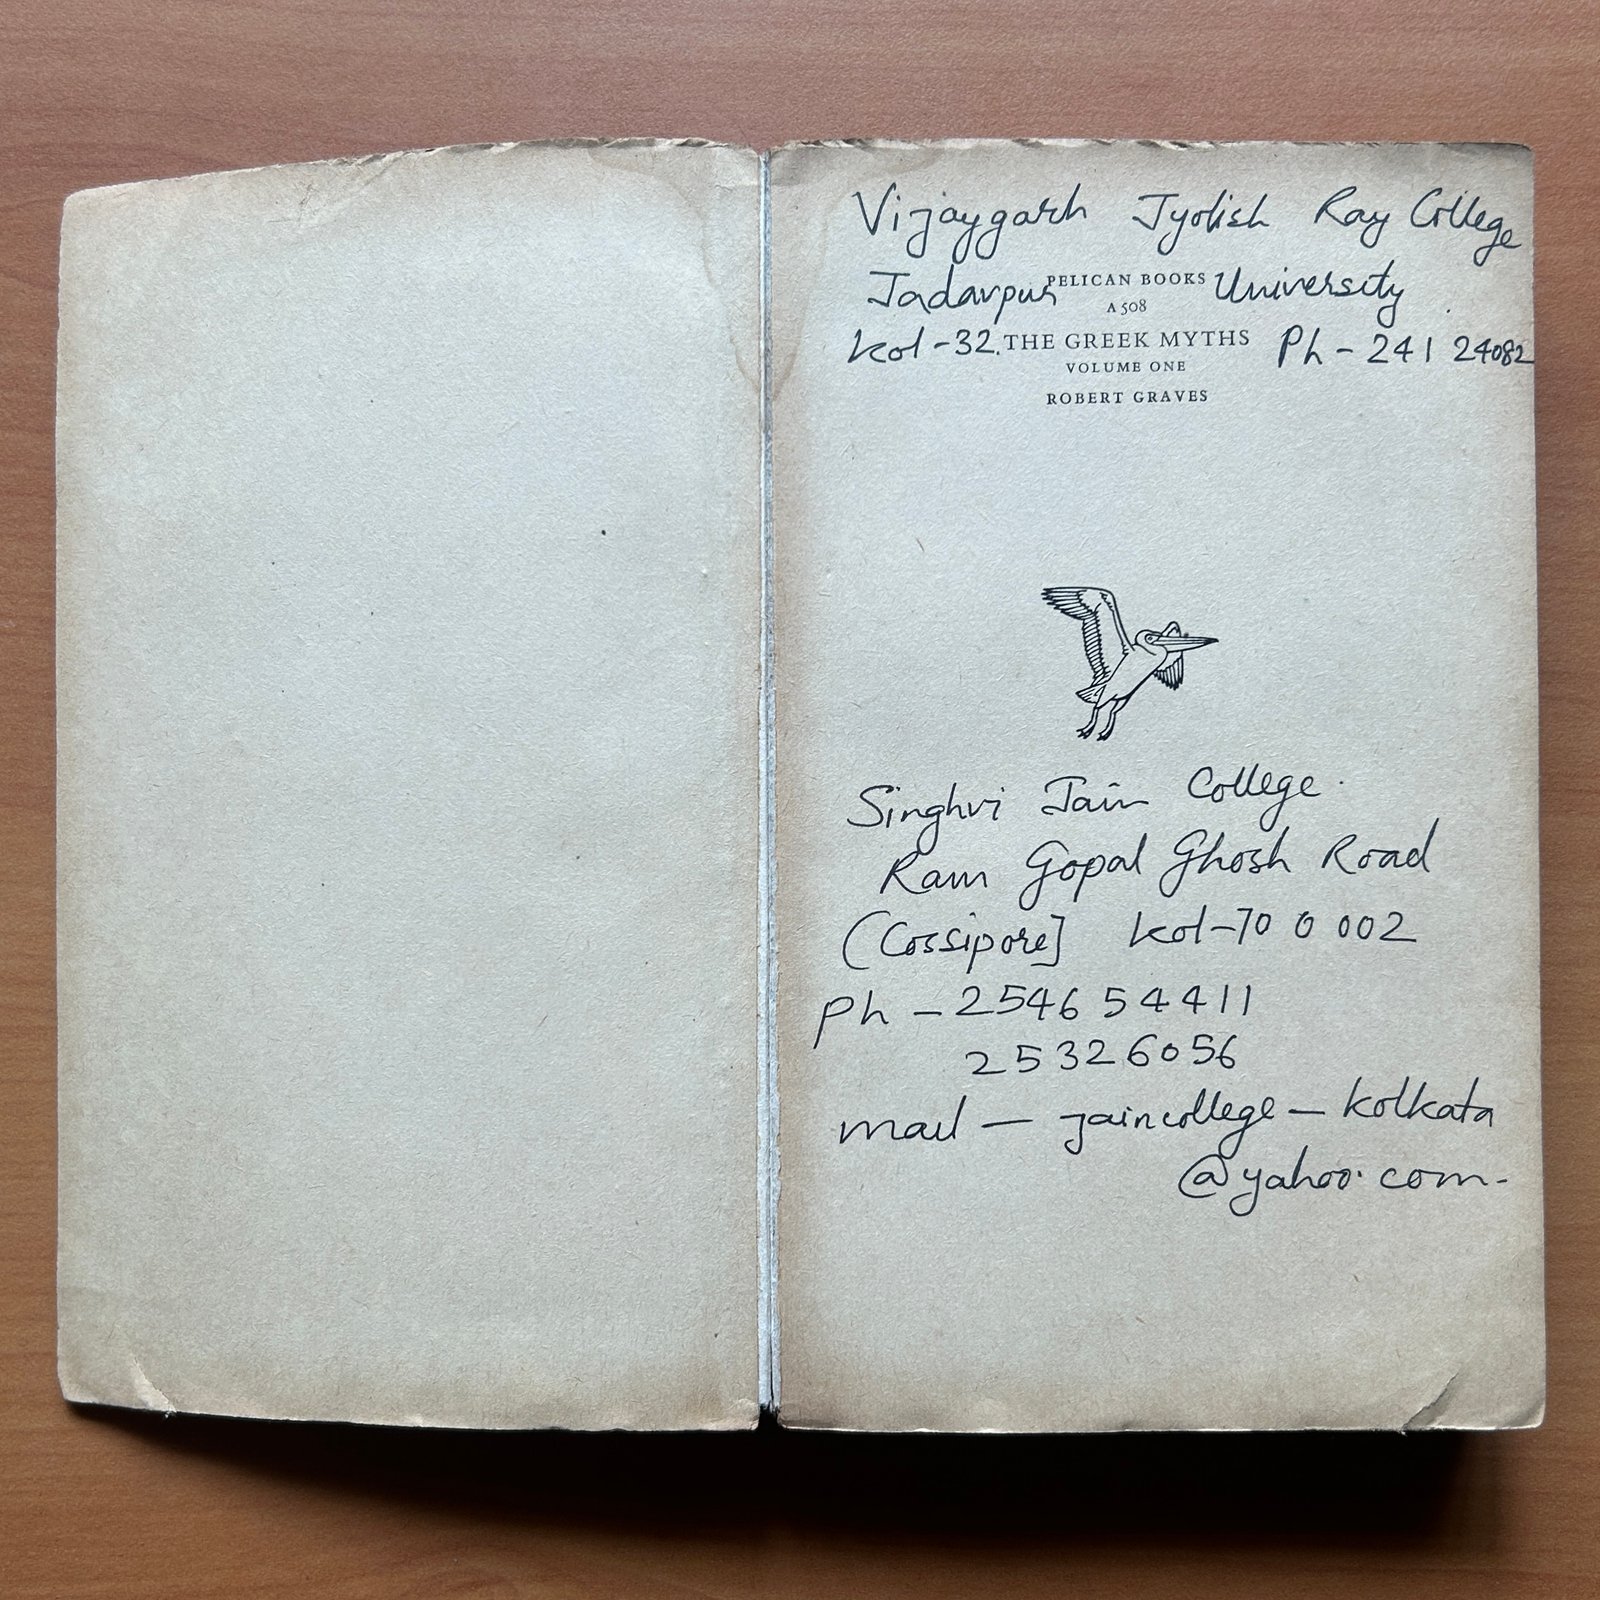 Vijaygarh Jyotish Ray College
PELICAN BOOKS
Jadavpur University
A 508
Kol-32. Ph - 241 24082
THE GREEK MYTHS
VOLUME ONE
ROBERT GRAVES
Singhvi Jain College.
Ram Gopal Ghosh Road
(Cossipore] Kol-70 0 002
Ph - 2546 54411
25326056
mail - jaincollege - kolkata
@yahoo.com-